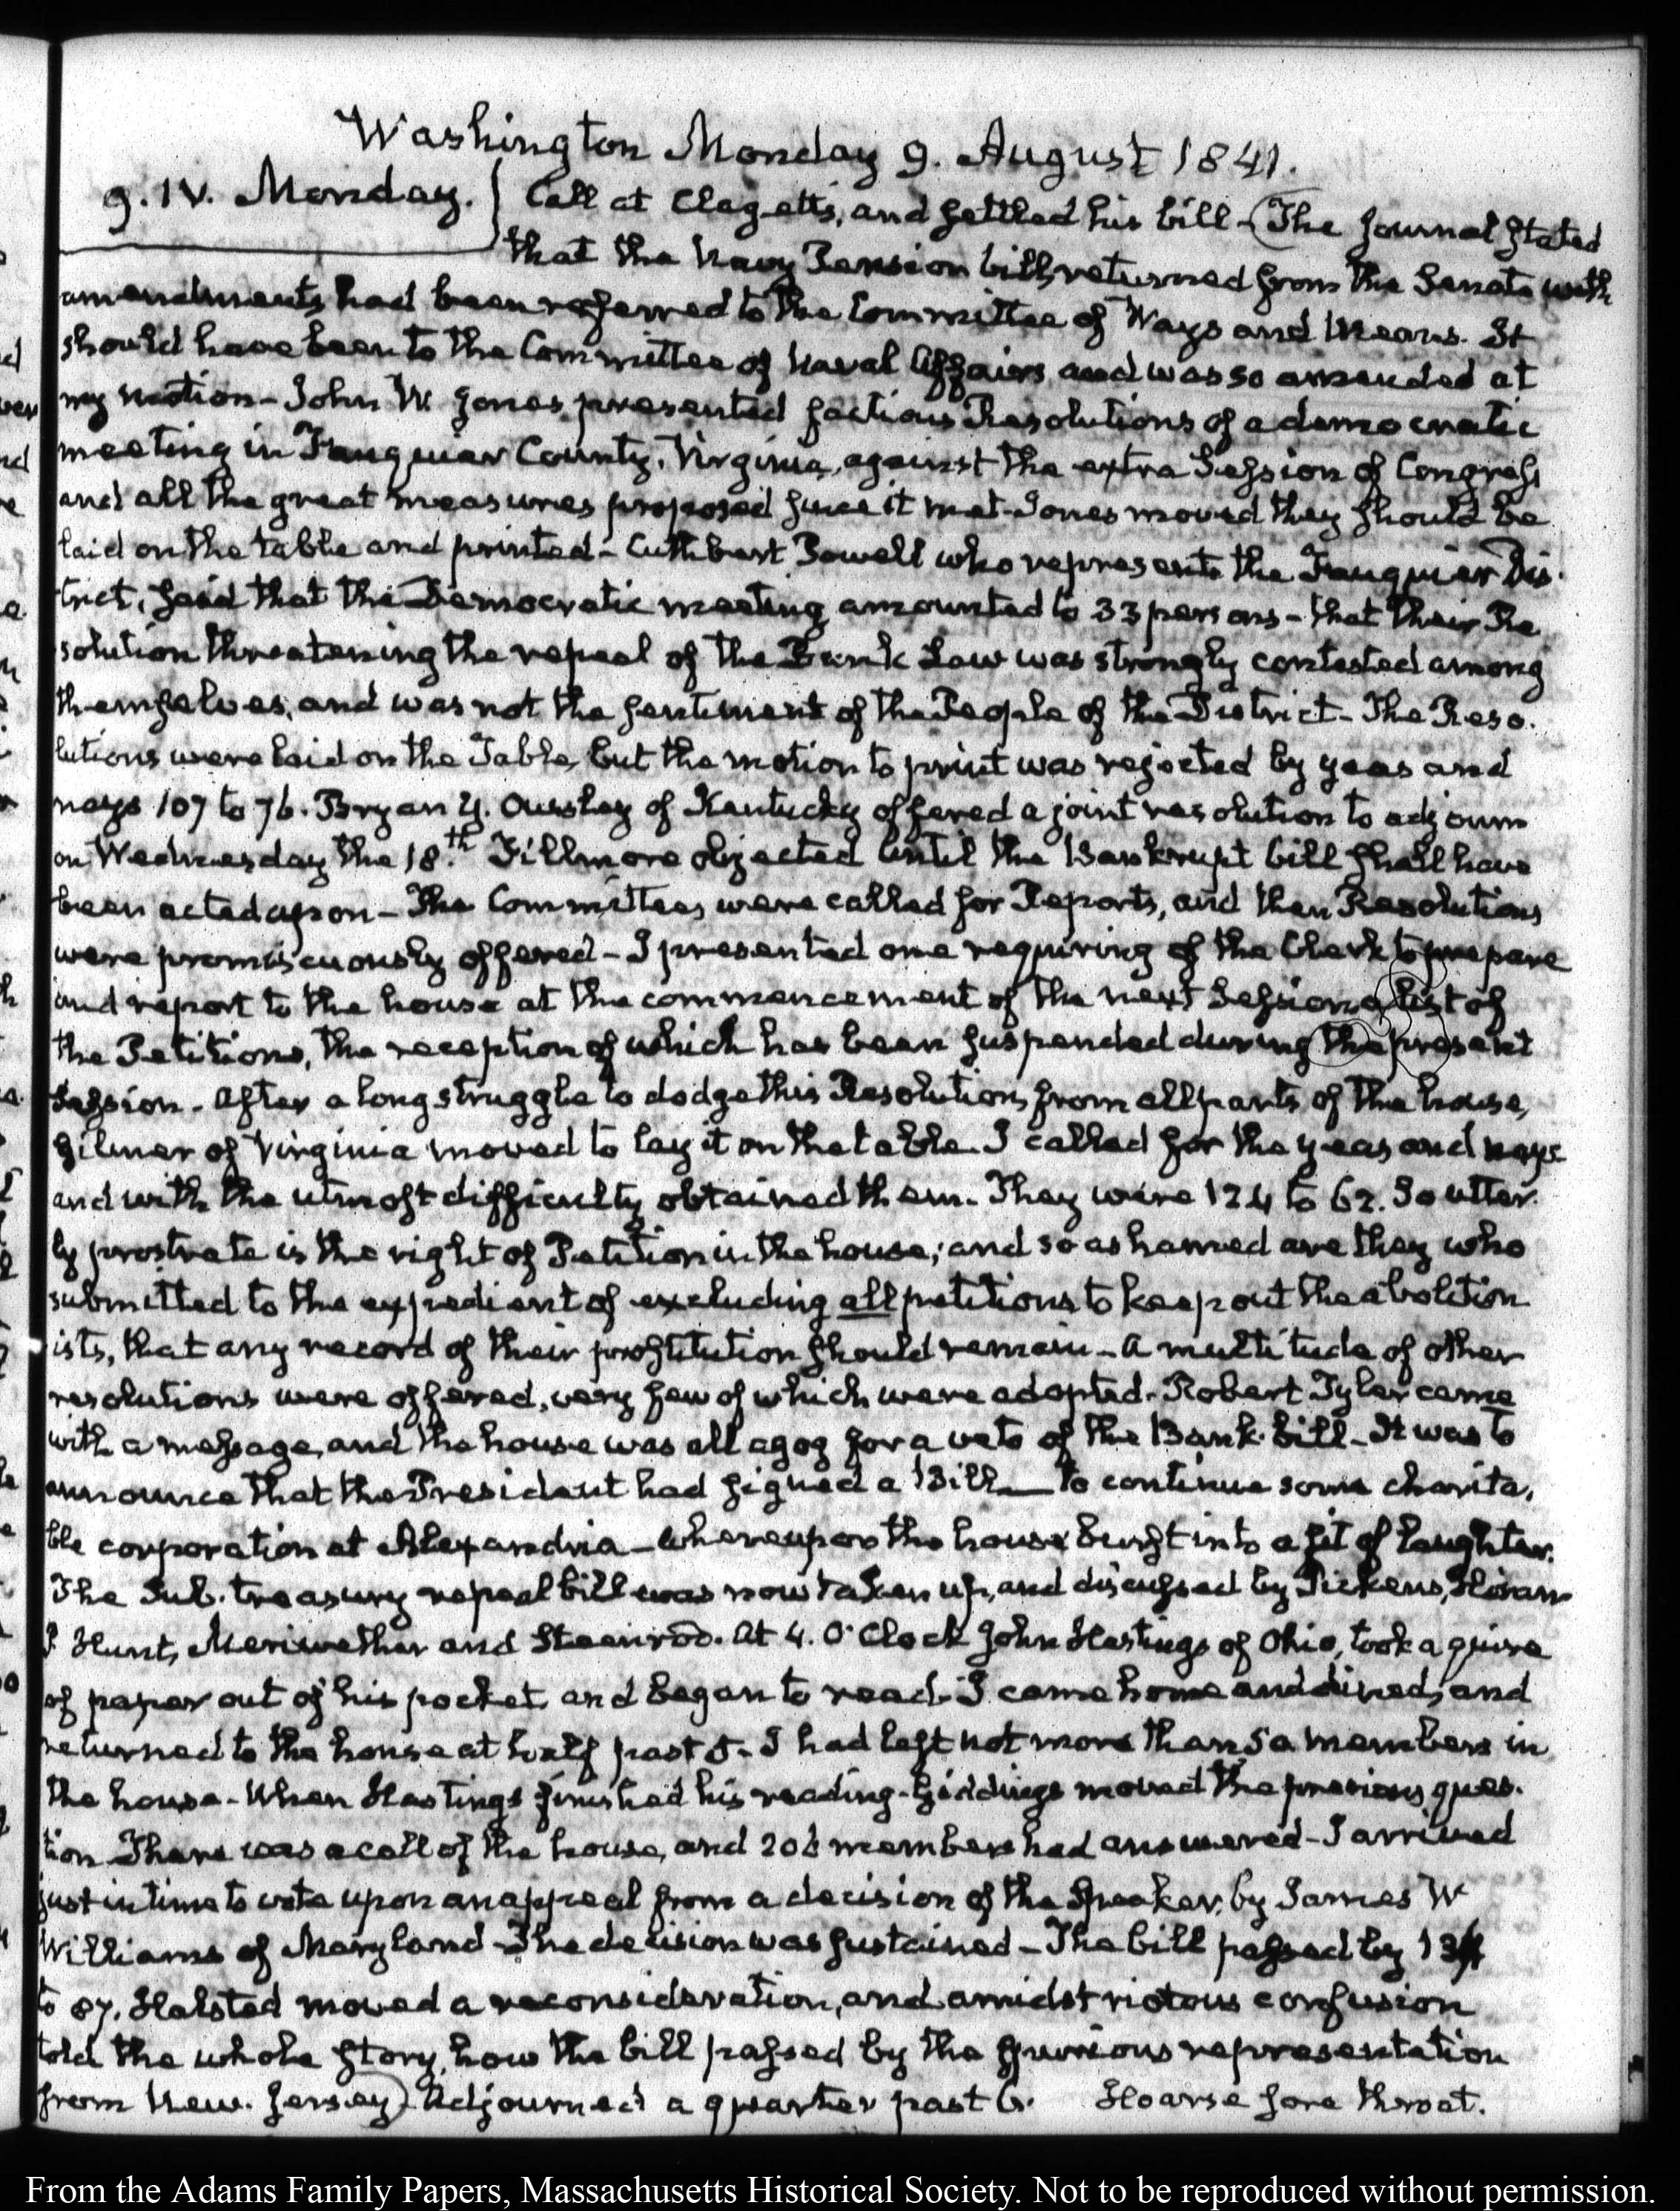 Washington Monday 9. August 1841.
9. IV. Monday. } Call at Clagett's, and settled his bill – (The Journal stated
that the Navy Pension bill, returned from the Senate with
amendments had been referred to the Committee of Ways and Means. It
should have been to the Committee of Naval Affairs, and was so amended at
my motion – John W. Jones presented factious Resolutions of a democratic
meeting in Fauquier County, Virginia, against the extra Session of Congress
and all the great measures proposed since it met – Jones moved they should be
laid on the table and printed – Cuthbert Powell who represents the Fauquier Dis-
trict, said that the Democratic meeting amounted to 33 persons – that their Re
solution threatening the repeal of the Bank Law was strongly contested among
themselves, and was not the sentiment of the People of the District – The Reso-
lutions were laid on the Table, but the motion to print was rejected by yeas and
nays 107 to 76. Bryan Y. Owsley of Kentucky offered a joint resolution to adjourn
on Wednesday the 18.th Fillmore objected until the Bankrupt bill shall have
been acted upon – The Committees were called for Reports, and then Resolutions
were promiscuously offered – I presented one requiring of the Clerk to prepare
and report to the house at the commencement of the next Session a list of
the Petitions, the reception of which has been suspended during the present
Session. After a long struggle to dodge this Resolution, from all parts of the house,
Gilmer of Virginia moved to lay it on the table. I called for the yeas and nays
and with the utmost difficulty obtained them. They were 124 to 62. So utter-
ly prostrate is the right of Petition in the house; and so ashamed are they who
submitted to the expedient of excluding all petitions to keep out the abolition
ists, that any record of their prostitution should remain – A multitude of other
resolutions were offered, very few of which were adopted. Robert Tyler came
with a message, and the house was all agog for a veto of the Bank bill – It was to
announce that the President had signed a Bill — to continue some charita-
ble corporation at Alexandria – whereupon the house burst into a fit of laughter.
The Sub-treasury repeal bill was now taken up, and discussed by Pickens, Hiram
P Hunt, Meriwether and Steenrod. At 4. O'Clock John Hastings of Ohio, took a quire
of paper out of his pocket, and began to read. I came home and dined, and
returned to the house at half past 5. I had left not more than 50 members in
the house – When Hastings finished his reading – Giddings moved the previous ques-
tion There was a call of the house, and 206 members had answered – I arrived
just in time to vote upon an appeal from a decision of the Speaker, by James W
Williams of Maryland – The decision was sustained – The bill passed by 134
to 87. Halsted moved a reconsideration, and amidst riotous confusion
told the whole story, how the bill passed by the spurious representation
from New-Jersey) Adjourned a quarter past 6. Hoarse sore throat.
From the Adams Family Papers, Massachusetts Historical Society. Not to be reproduced without permission.